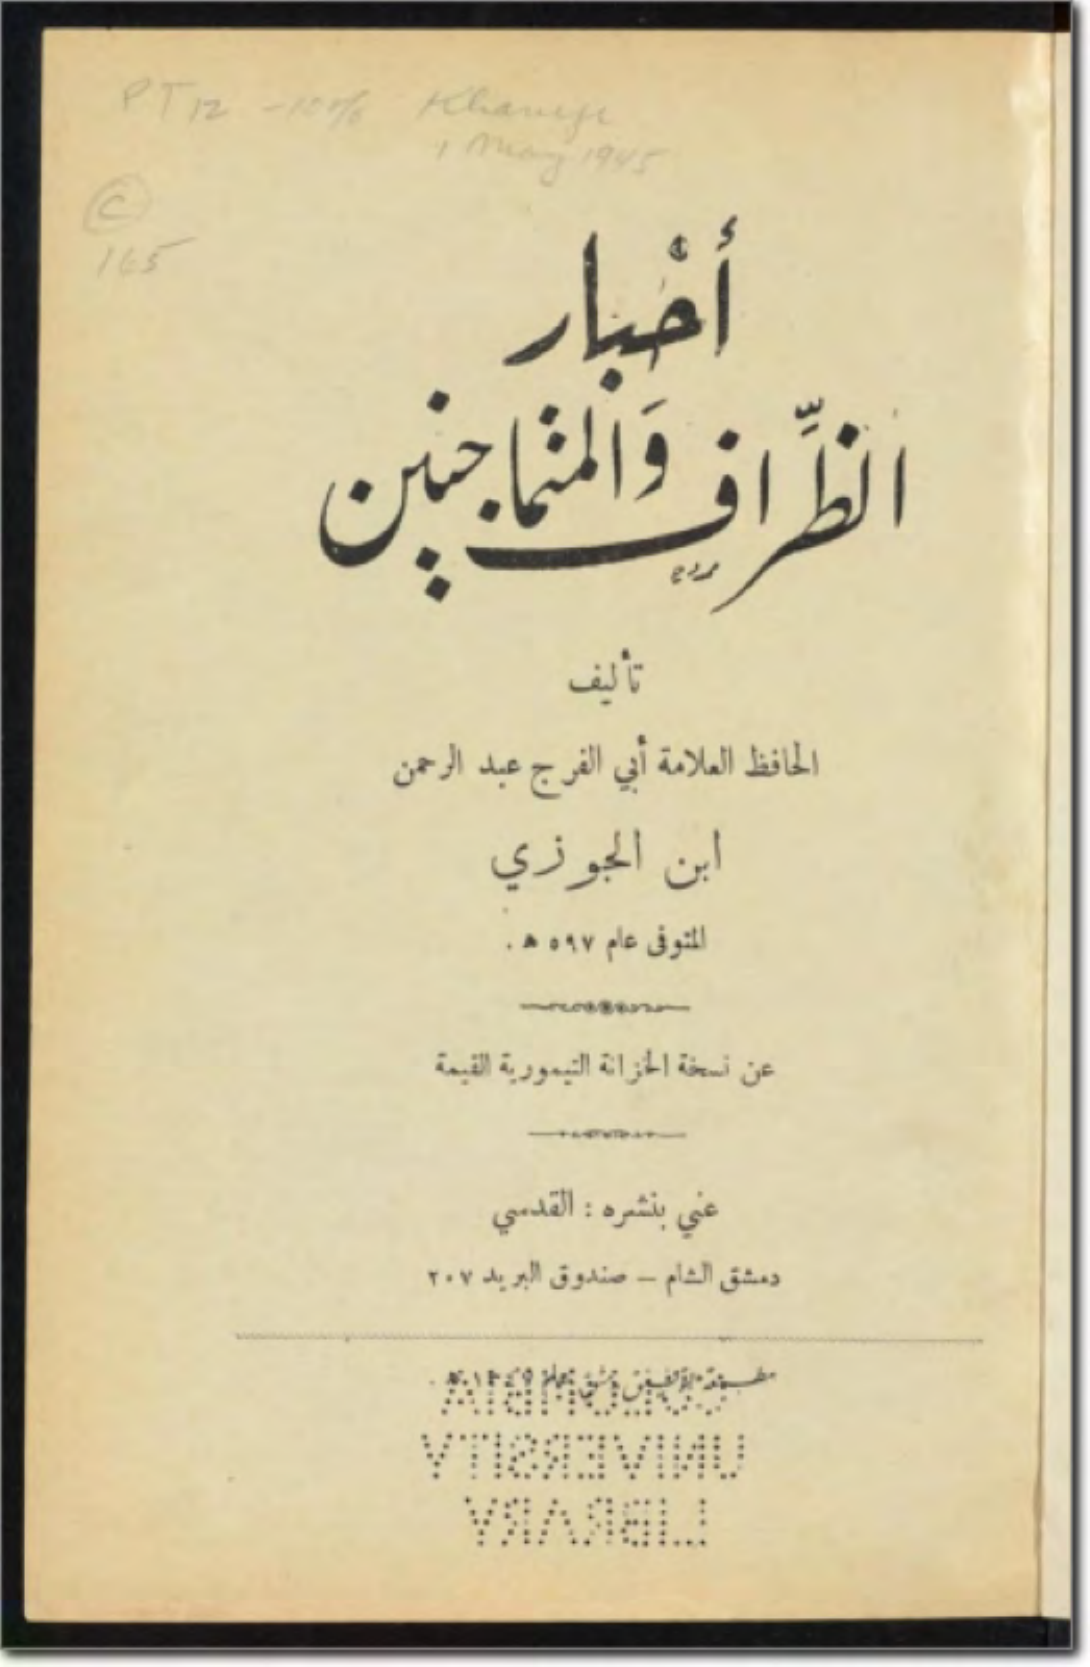 PT12 - 10 Khanji
1 May 1945
C
165
أخْبار
الظِّراف وَالمتماجنين
تأليف
الحافظ العلامة أبي الفرج عبد الرحمن
ابن الجوزي
المتوفى عام ٥٩٧ ه .
عن نسخة الخزانة التيمورية القيمة
عني بنشره : القدسي
دمشق الشام — صندوق البريد ٢٠٧
مطبعة التوفيق بدمشق عام
COLUMBIA
UNIVERSITY
LIBRARY